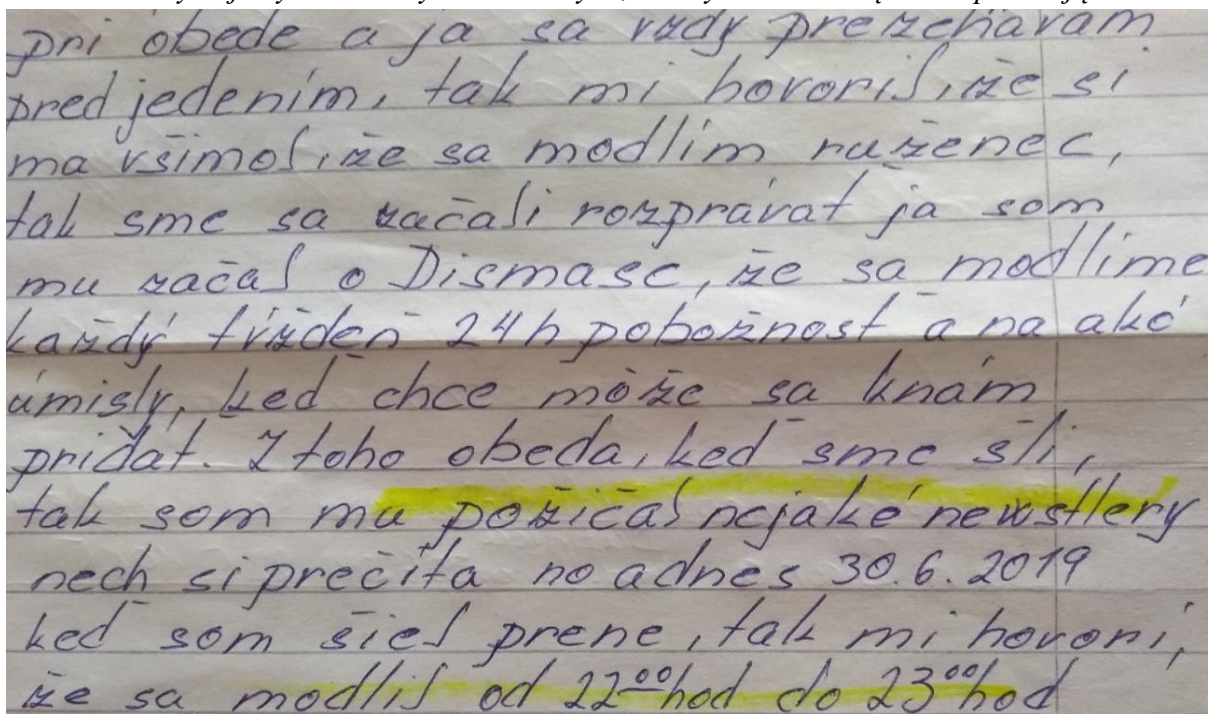 pri obede a ja sa vždy prežehávam
pred jedením, tak mi hovoril, že si
ma všimol, že sa modlím ruženec,
tak sme sa začali rozprávat ja som
mu začal o Dismasc, že sa modlíme
každý tíždeň 24h pobožnost a na aké
úmisly, keď chce može sa knám
pridat. Z toho obeda, keď sme šli,
tak som mu požičal nejaké newstlery
nech si prečíta no adnes 30.6.2019
keď som šiel prene, tak mi hovori,
že sa modlil od 22⁰⁰hod do 23⁰⁰hod